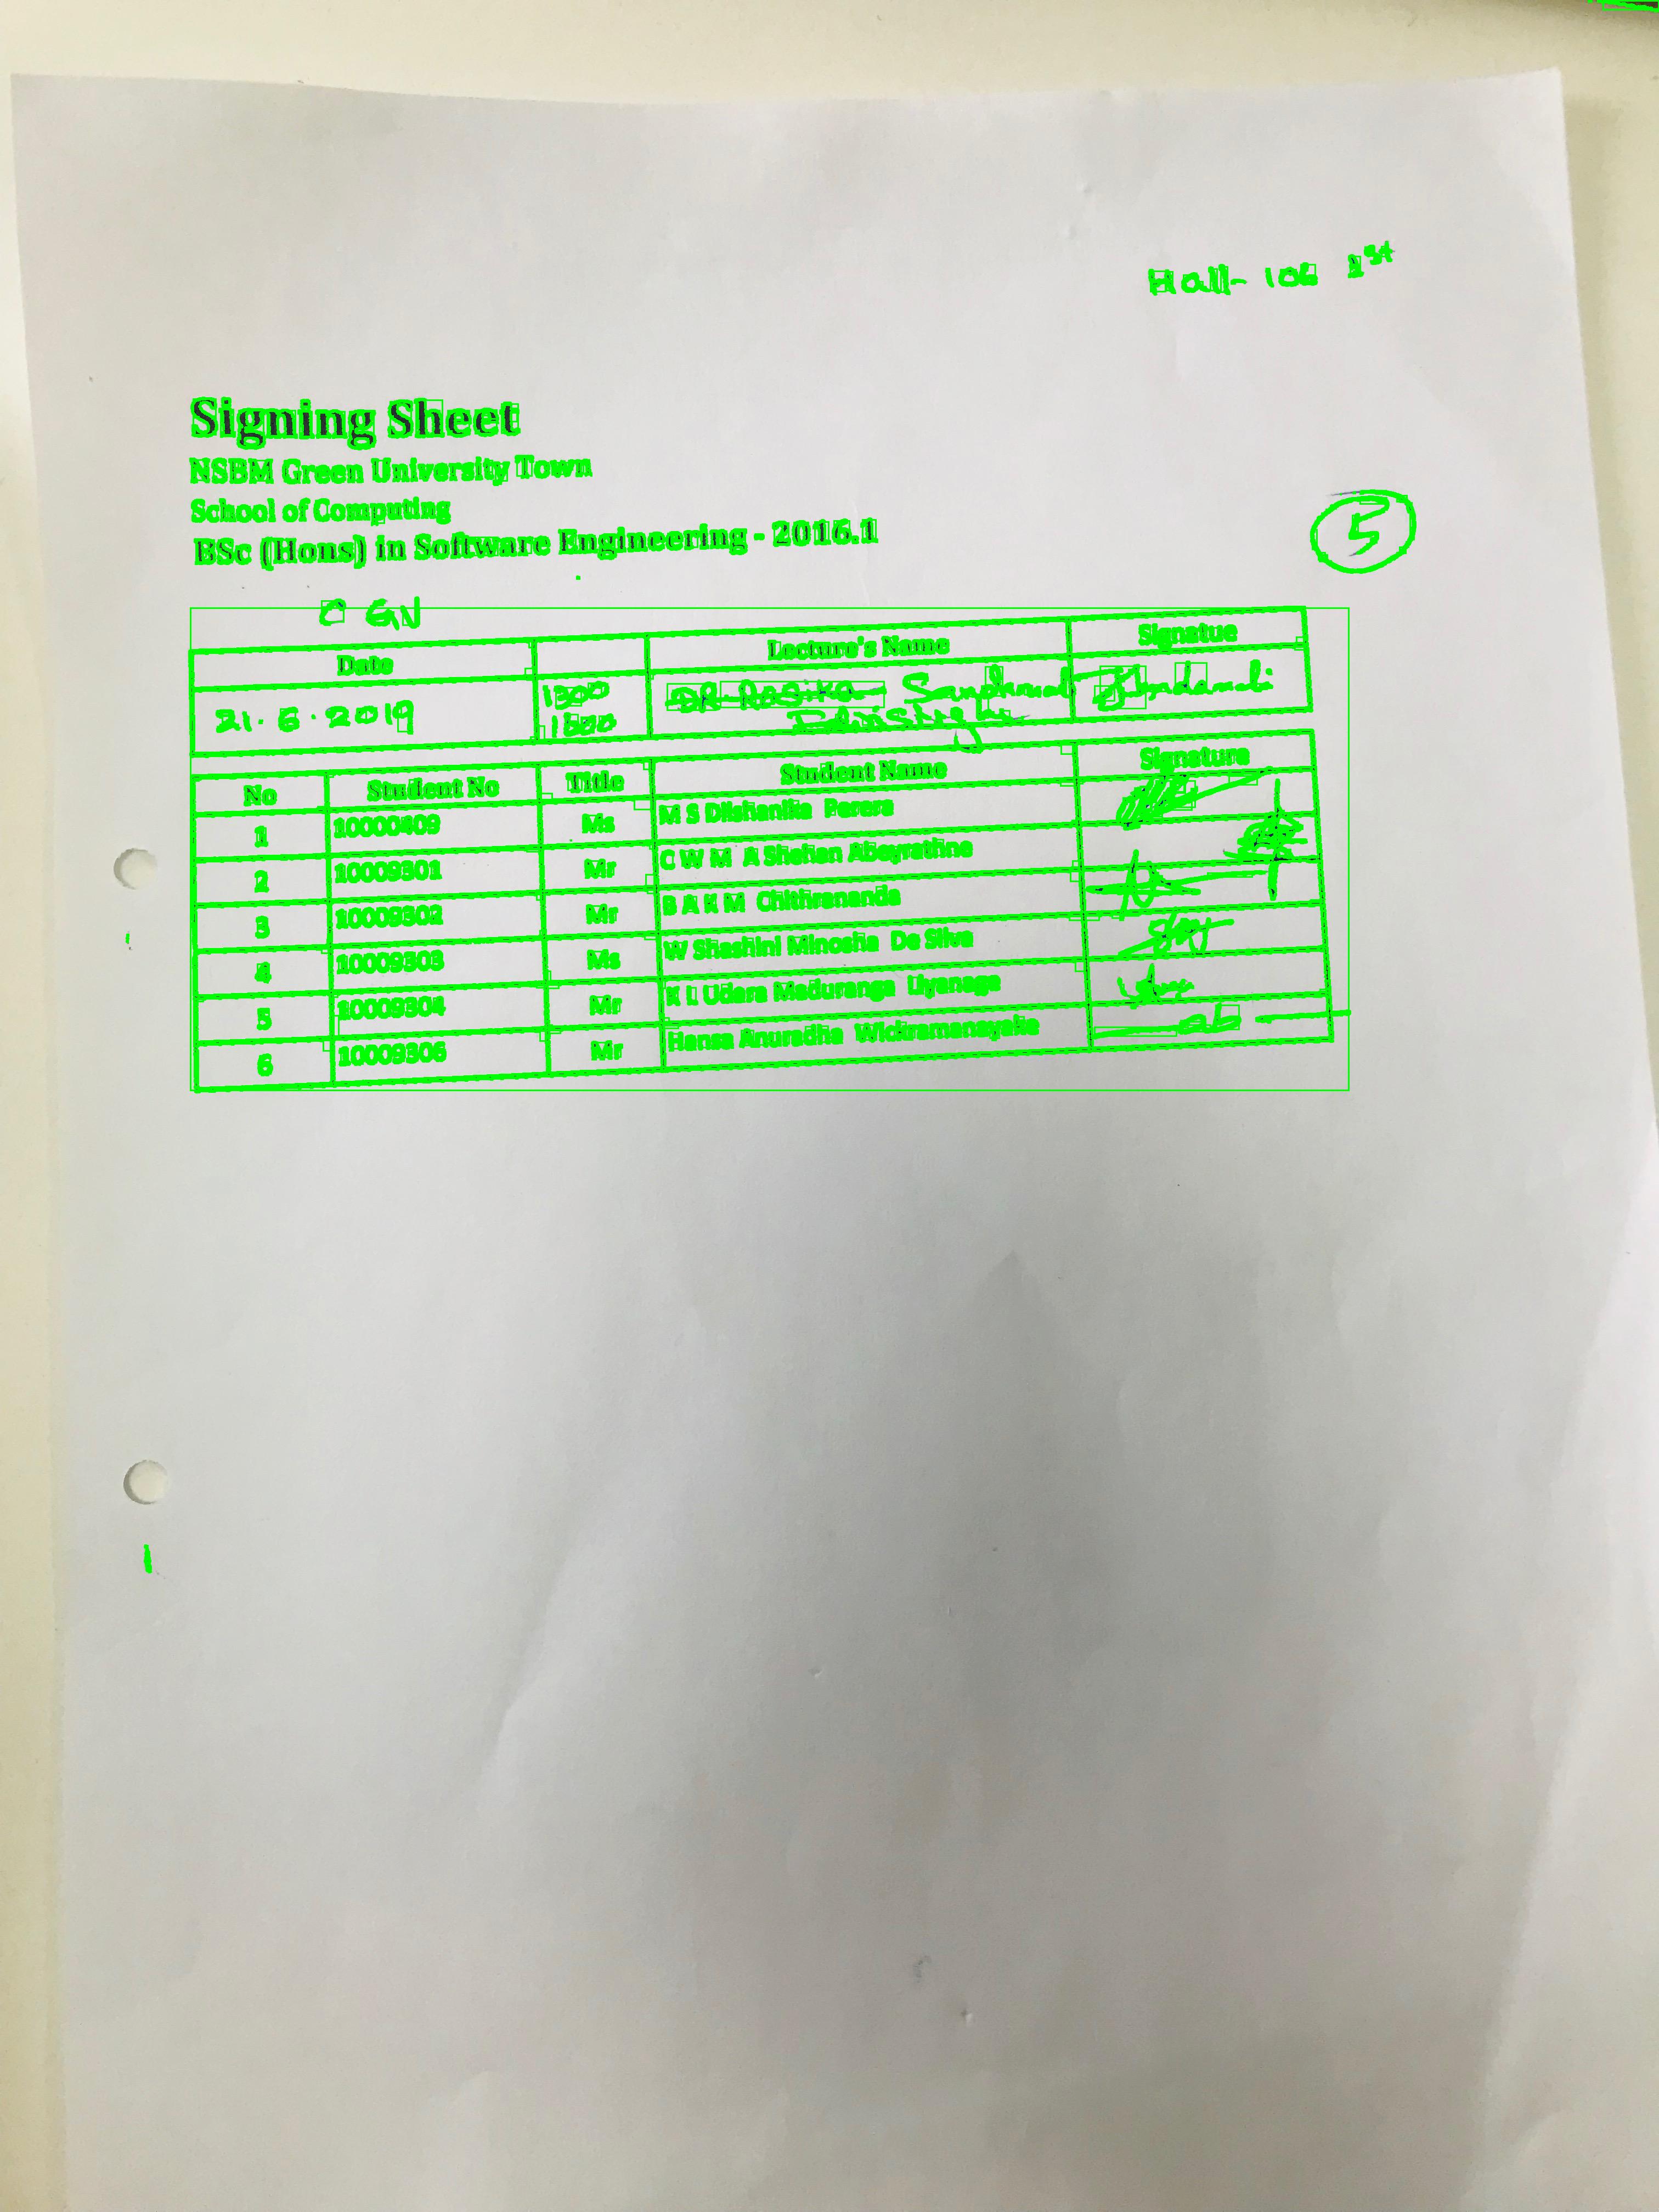 Hall- 106 1st
Signing Sheet
NSBM Green University Town
School of Computing
BSc (Hons) in Software Engineering - 2016.1
5
C GV
Date Lecture's Name Signatue
21.6.2019 1300
No Student No Title Student Name Signature
1 10000409 Ms M S Dilshanika Perera
2 10009301 Mr C W M A Shehan Abeyrathne
3 10009302 Mr B A K M Chithrananda
4 10009303 Ms W Shashini Minosha De Silva
5 10009304 Mr K L Udara Maduranga Liyanage
6 10009306 Mr Hansa Anuradha Wickramanayake